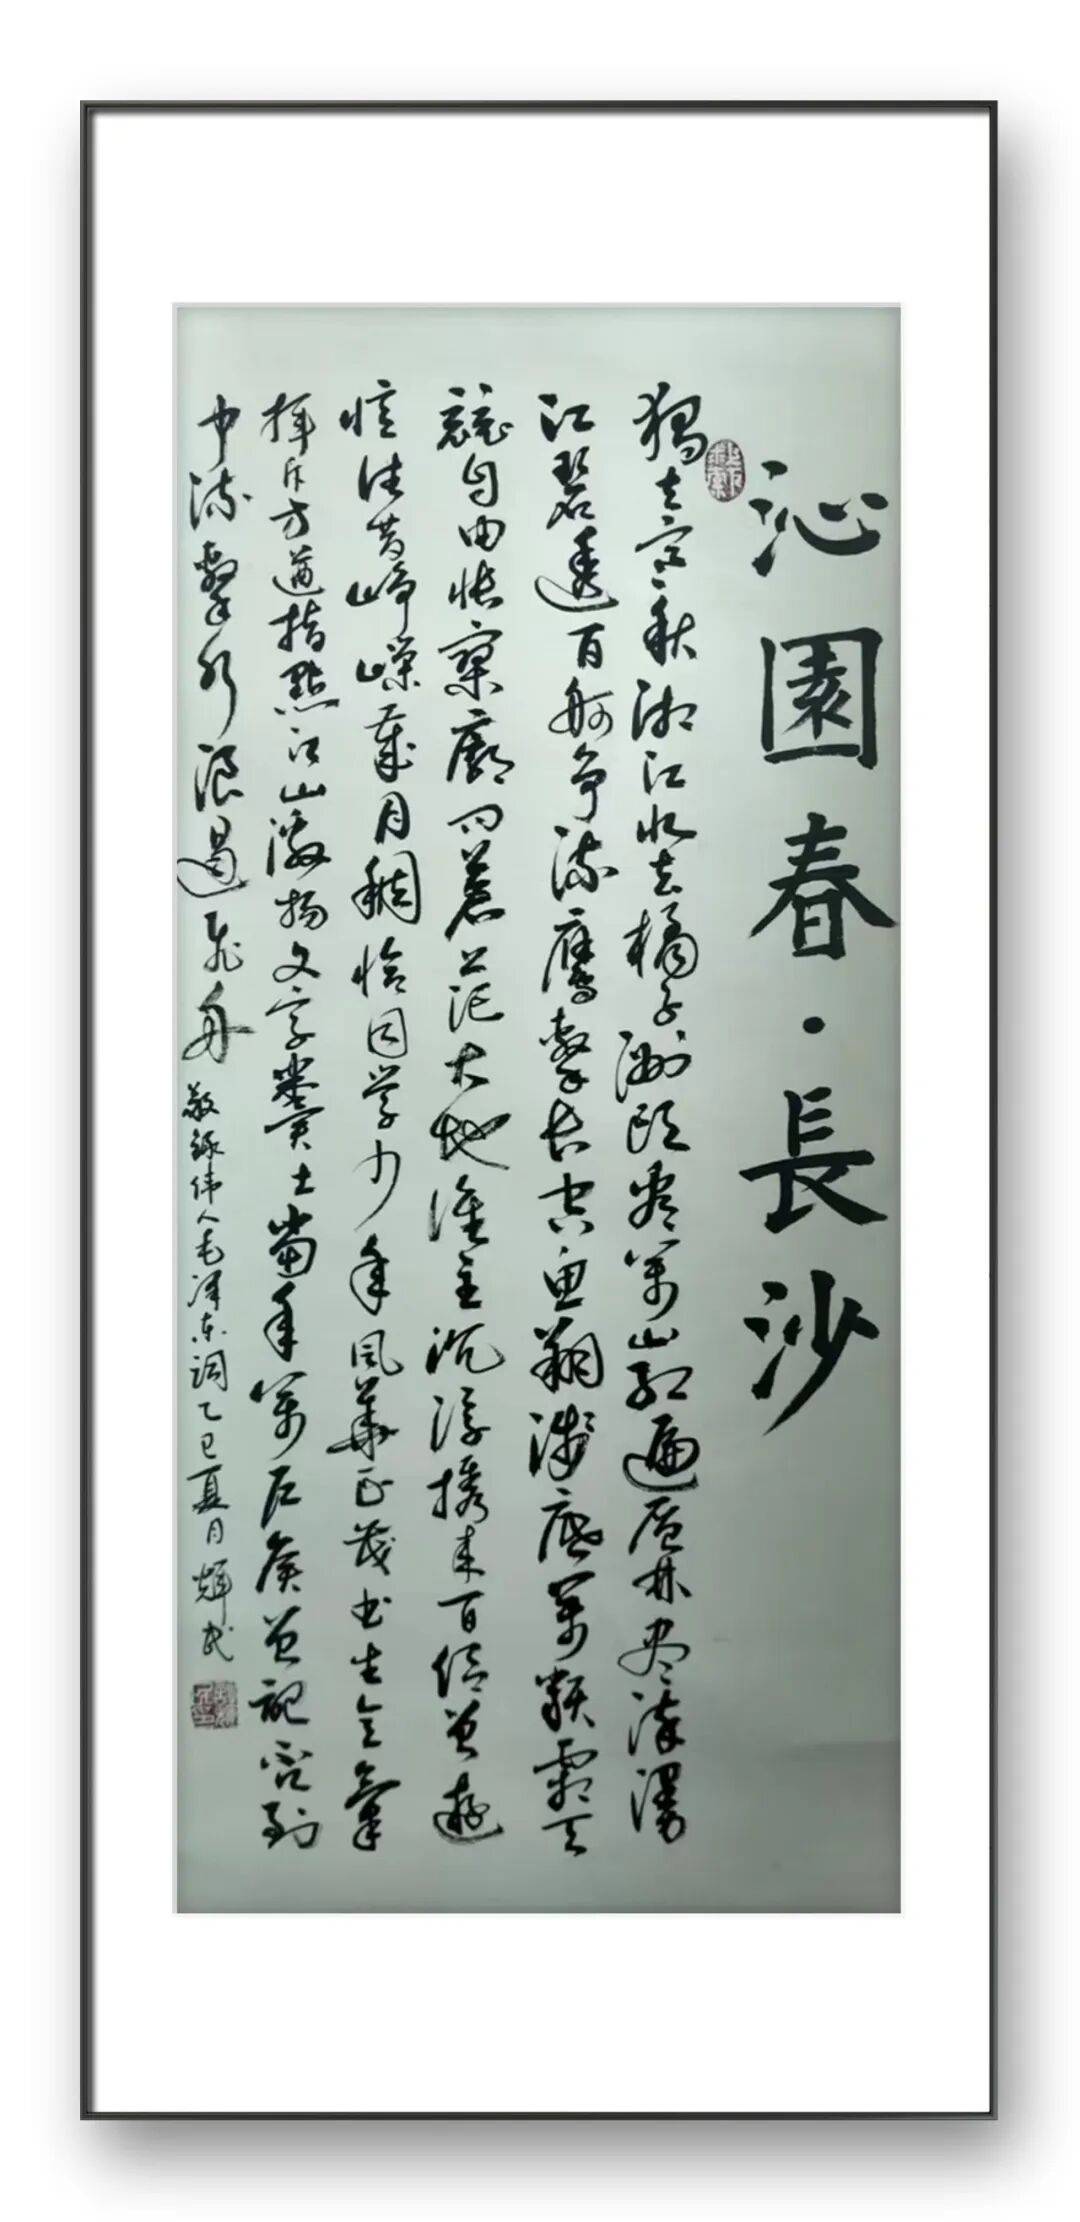 沁園春·長沙
獨立寒秋湘江北去橘子洲頭看萬山紅遍层林尽染漫
江碧透百舸争流鷹擊长空鱼翔浅底萬類霜天
競自由怅寥廓问蒼茫大地谁主沉浮携来百侣曾遊
憶往昔峥嵘歲月稠恰同学少年風華正茂书生意氣
揮斥方遒指點江山激扬文字糞土當年萬户侯曾记否到
中流擊水浪遏飞舟
敬録伟人毛泽东词乙巳夏月輝武